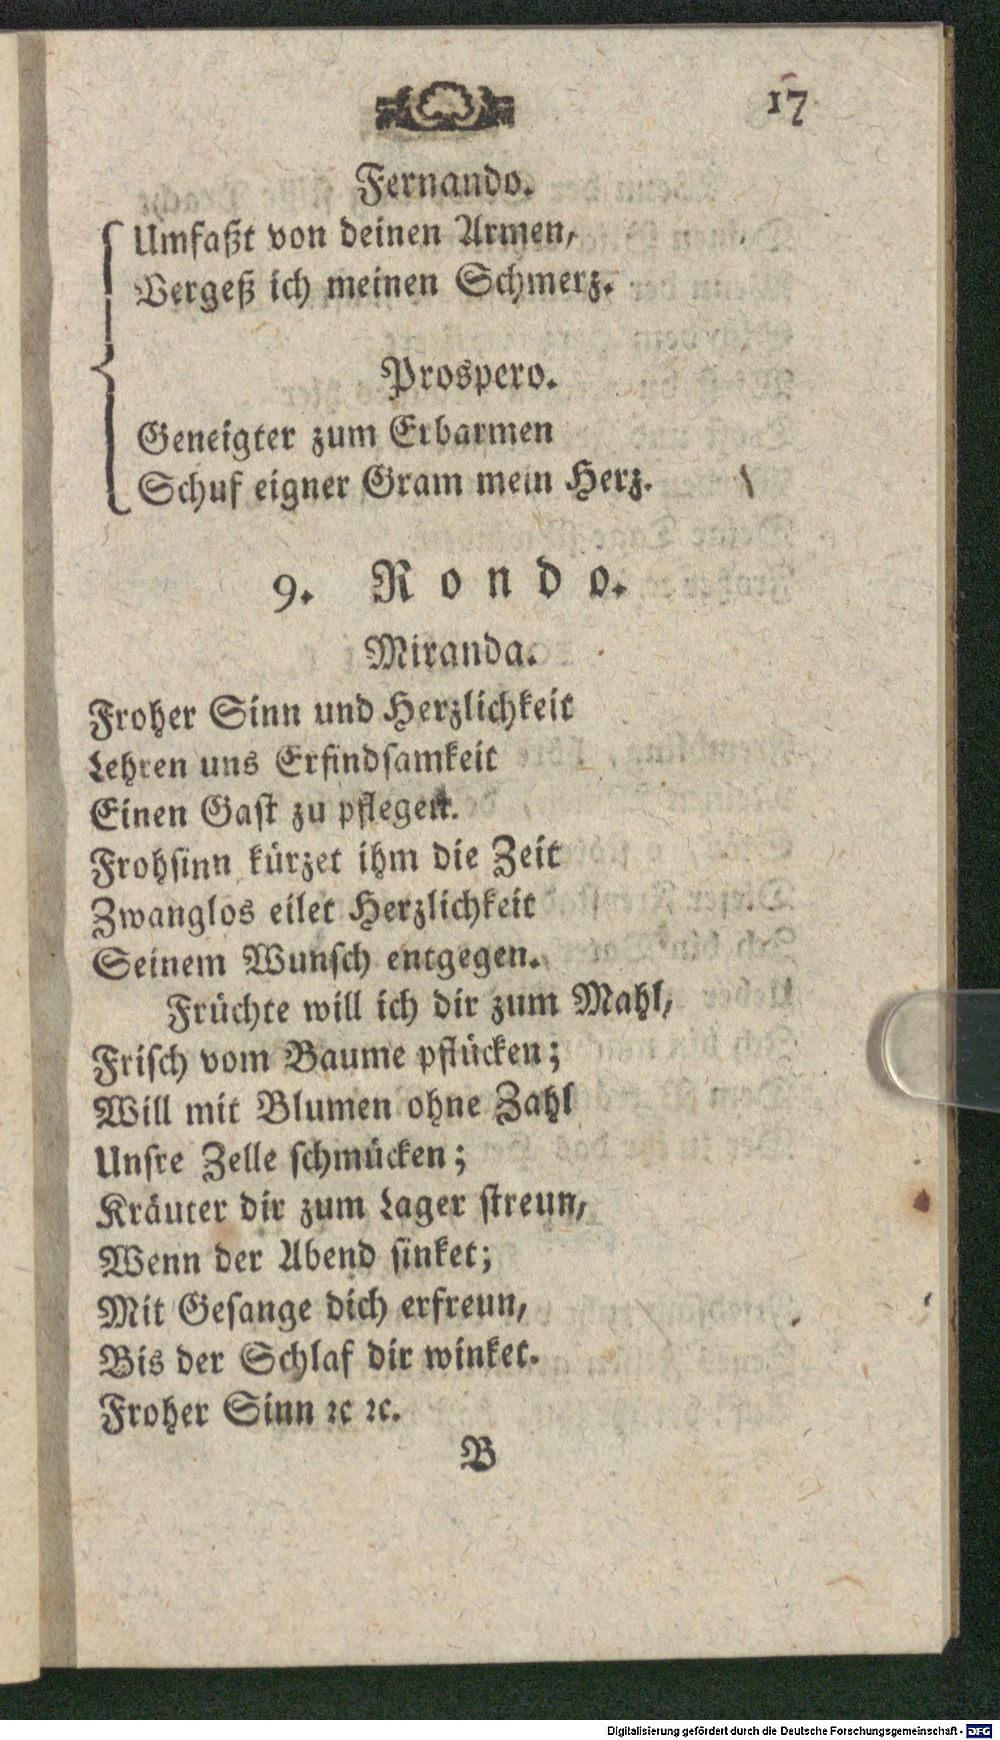 17
Fernando.
Umfaßt von deinen Armen,
Vergeß ich meinen Schmerz.
Prospero.
Geneigter zum Erbarmen
Schuf eigner Gram mein Herz.
9. Rondo.
Miranda.
Froher Sinn und Herzlichkeit
Lehren uns Erfindsamkeit
Einen Gast zu pflegen.
Frohsinn kürzet ihm die Zeit
Zwanglos eilet Herzlichkeit
Seinem Wunsch entgegen.
Früchte will ich dir zum Mahl,
Frisch vom Baume pflücken;
Will mit Blumen ohne Zahl
Unsre Zelle schmücken;
Kräuter dir zum Lager streun,
Wenn der Abend sinket;
Mit Gesange dich erfreun,
Bis der Schlaf dir winket.
Froher Sinn ꝛc ꝛc.
B
Digitalisierung gefördert durch die Deutsche Forschungsgemeinschaft - DFG